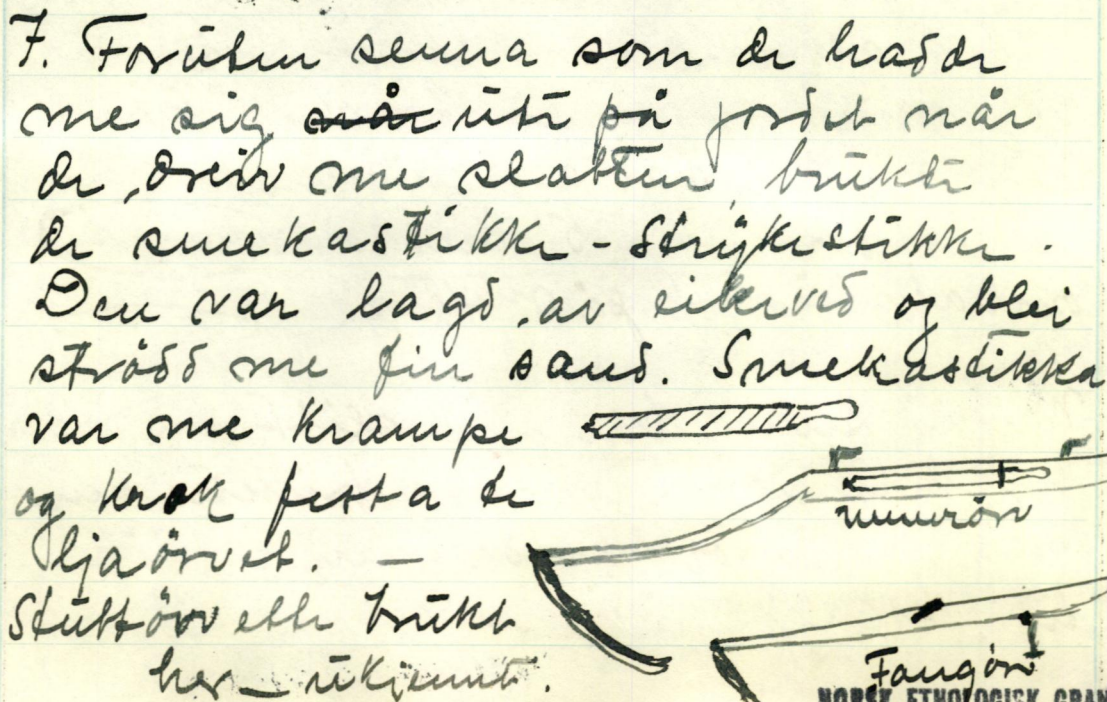 7. Foruten senna som de hadde
me sig når ute på jordet når
de dreiv me slåtten, brukte
de smekastikke - Strykestikke.
Den var lagd av eikeved og blei
strödd me fin sand. Smekastikka
var me krampe
og krok festa te
ljaörvet. —
Stuttörv ette brukt
her - ukjennt.
Fangörv
NORSK ETNOLOGISK GRAN